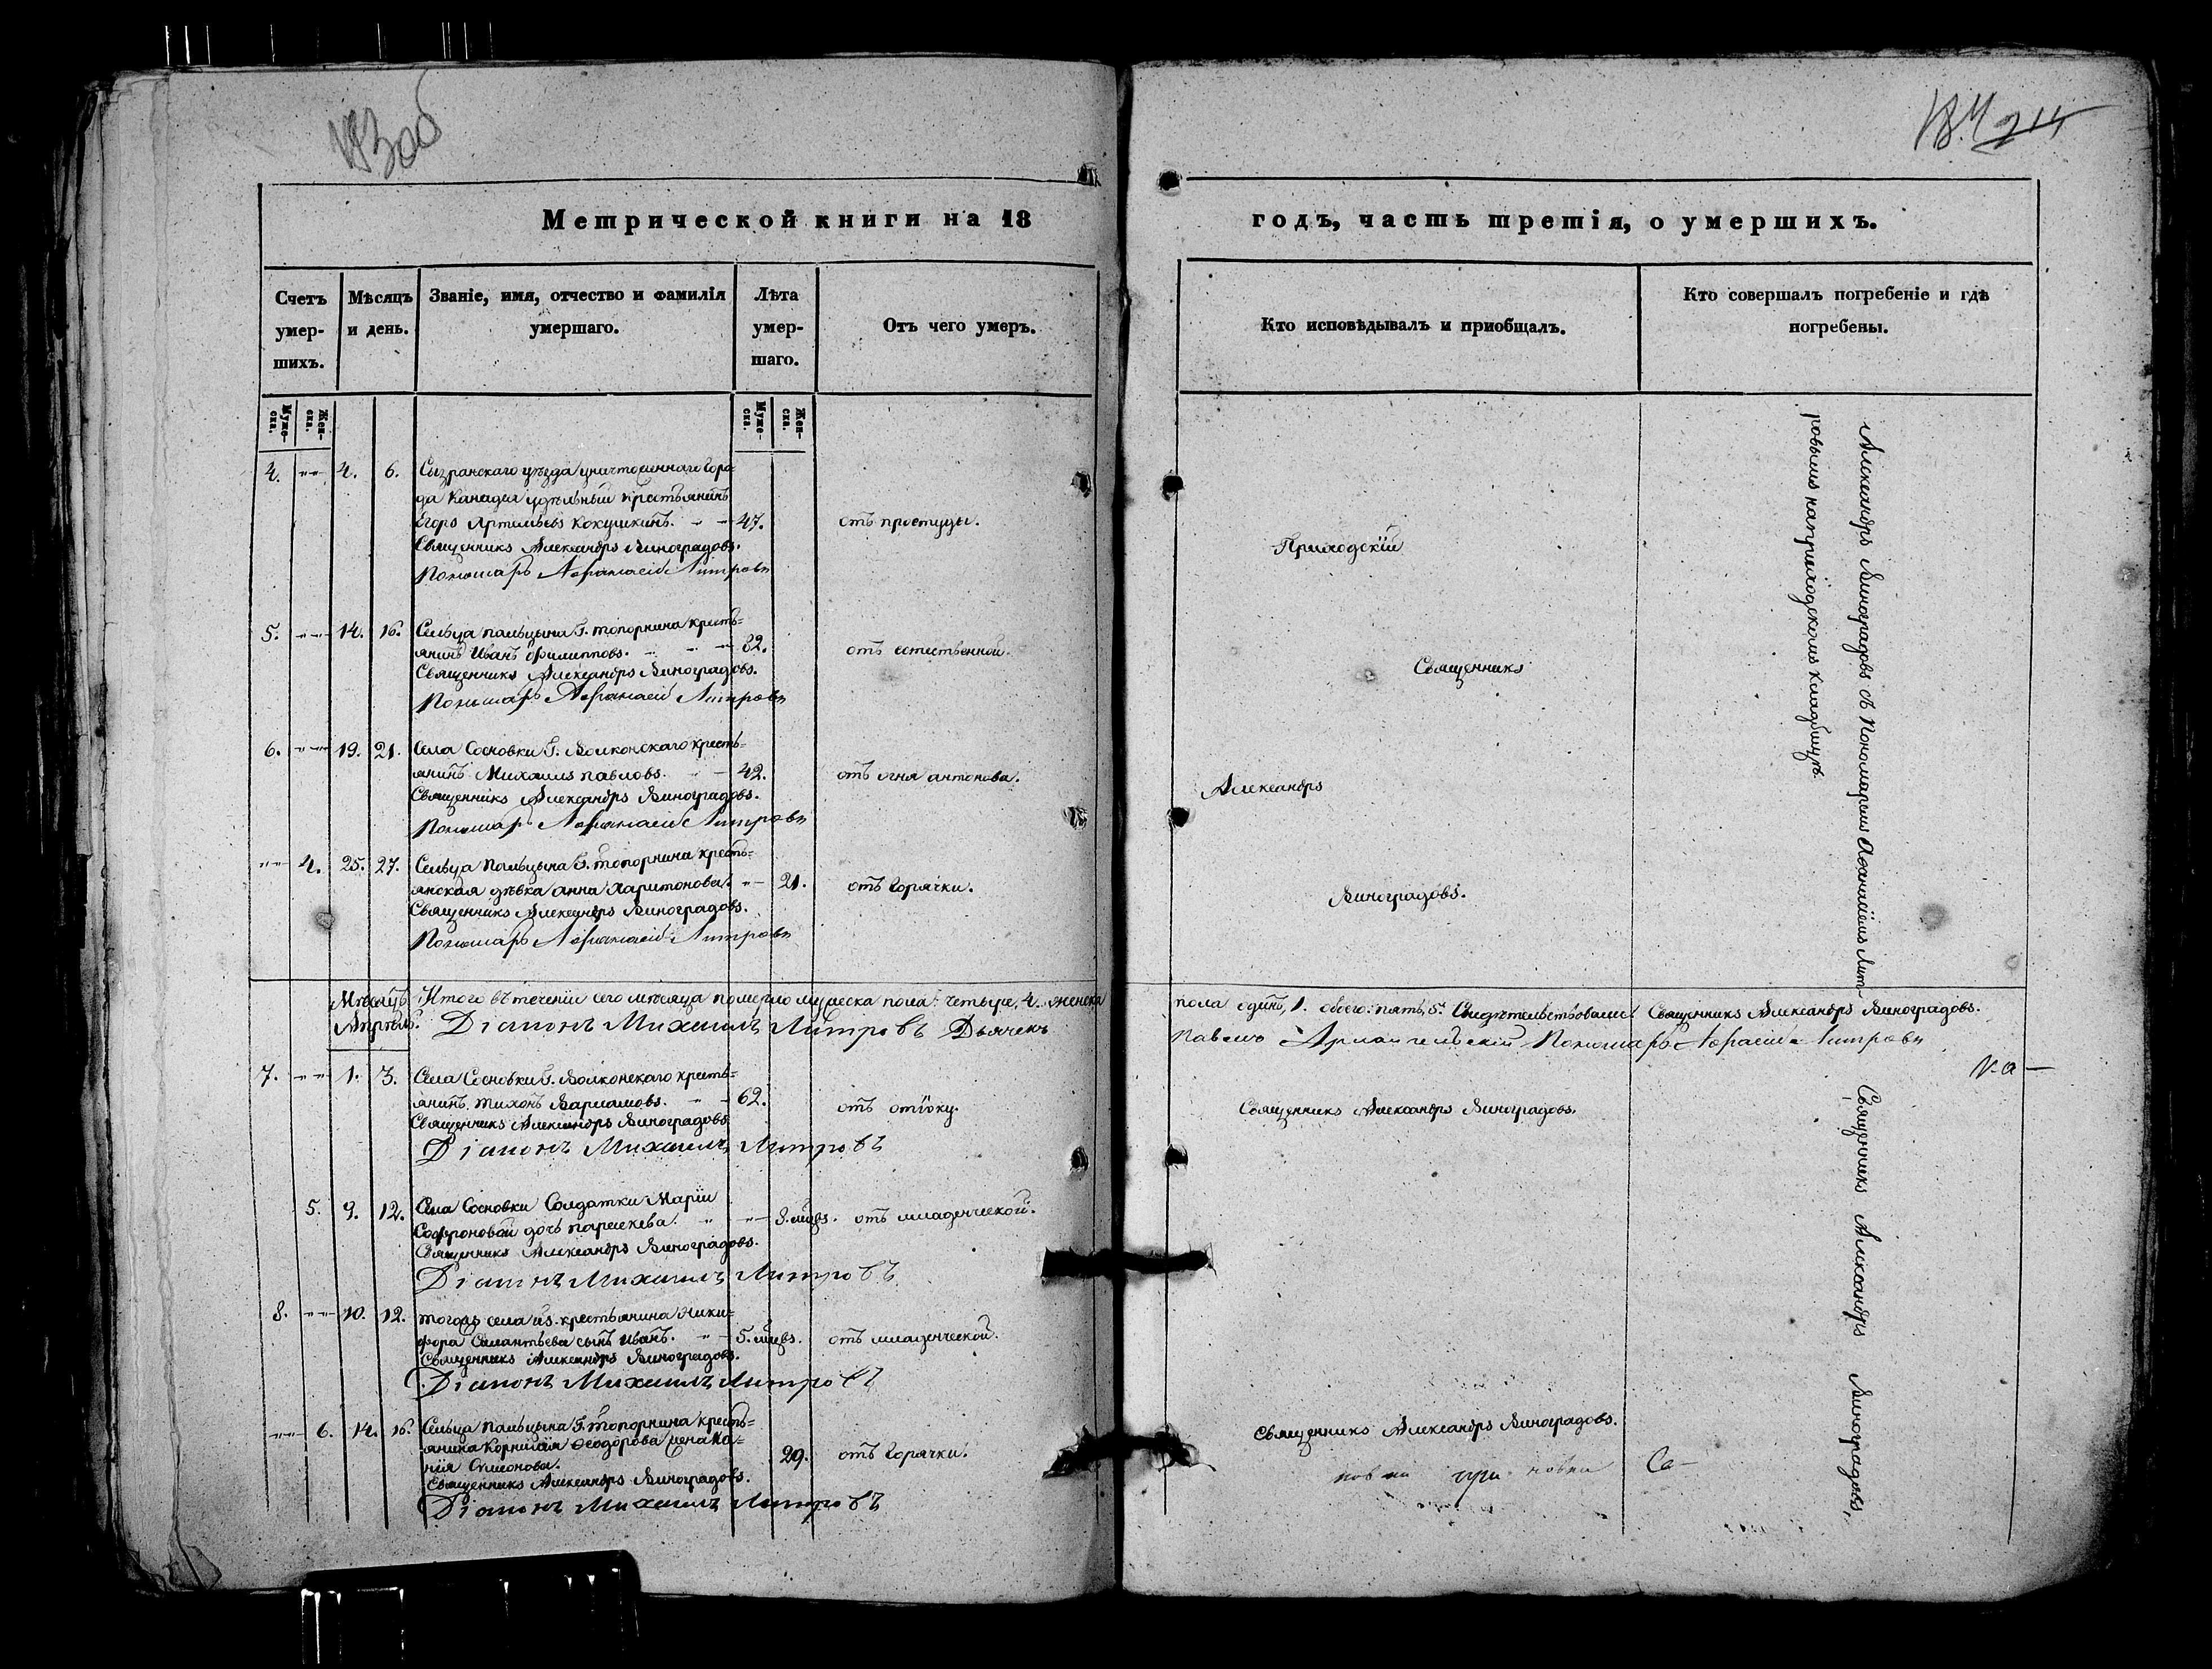 Метрической книги на 18
годъ, часть третія, о умершихъ.
Счетъ умер-шихъ.
Мѣсяцъ и день.
Званіе, имя, отчество и фамилія умершаго.
Лѣта умер-шаго.
Отъ чего умеръ.
Кто исповѣдывалъ и пріобщалъ.
Кто совершалъ погребеніе и гдѣ погребены.
Муже-ска.
Жен-ска.
Муже-ска.
Жен-ска.
4. 4. 6. Сызранскаго уѣзда уничтоженнаго Горо-
да Канадея удѣльный крестьянинъ
Егоръ Артемьевъ Кокушкинъ. 47. отъ простуды.
Священникъ Александръ Виноградовъ.
Пономарь Афанасій Литровъ
5. 14. 16. Сельца Пальцына Г. Топорнина кресть-
янинъ Иванъ Филипповъ. 82. отъ естественной.
Священникъ Александръ Виноградовъ.
Пономарь Афанасій Литровъ
6. 19. 21. Села Сосновки Г. Волконскаго кресть-
янинъ Михаилъ Павловъ. 42. отъ огня антонова.
Священникъ Александръ Виноградовъ.
Пономарь Афанасій Литровъ
4. 25. 27. Сельца Пальцына Г. Топорнина кресть-
янская дѣвка Анна Харитонова. 21. отъ горячки.
Священникъ Александръ Виноградовъ.
Пономарь Афанасій Литровъ
Приходскій
Священникъ
Александръ
Виноградовъ.
Александръ Виноградовъ съ Пономаремъ Афанасіемъ Лит-
ровымъ на приходскомъ кладбищѣ.
Итого въ теченіи сего мѣсяца померло мужеска пола: четыре, 4. женска
пола одинъ, 1. обоего: пять, 5. Свидѣтельствовали: Священникъ Александръ Виноградовъ.
Діаконъ Михаилъ Литровъ Дьячекъ
Павелъ Архангельскій Пономарь Афанасій Литровъ
Мѣсяцъ
Апрѣль.
7. 1. 3. Села Сосновки Г. Волконскаго кресть-
янинъ Тихонъ Варламовъ. 62. отъ отіоку.
Священникъ Александръ Виноградовъ
Діаконъ Михаилъ Литровъ
5. 9. 12. Села Сосновки Солдатки Маріи
Софроновой дочь Параскева. 8. мцвъ. отъ младенческой.
Священникъ Александръ Виноградовъ.
Діаконъ Михаилъ Литровъ
8. 10. 12. Тогожъ села Г. крестьянина Ники-
фора Силантьева сынъ Иванъ. 5. мцвъ. отъ младенческой.
Священникъ Александръ Виноградовъ.
Діаконъ Михаилъ Литровъ
6. 14. 16. Сельца Пальцына Г. Топорнина кресть-
янина Корнилія Ѳеодорова жена Ксе-
нія Симонова. 29. отъ горячки.
Священникъ Александръ Виноградовъ.
Діаконъ Михаилъ Литровъ
Священникъ Александръ Виноградовъ.
Священникъ Александръ Виноградовъ.
Священникъ Александръ Виноградовъ,